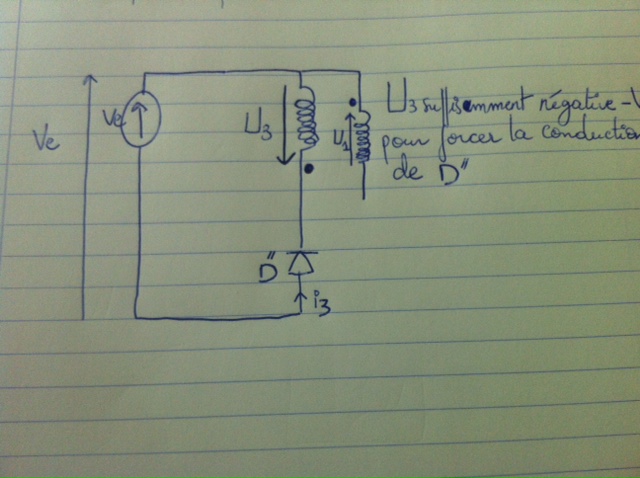 Ve
Ve
U3
U1
U3 suffisamment négative -V
pour forcer la conduction
de D"
D"
i3